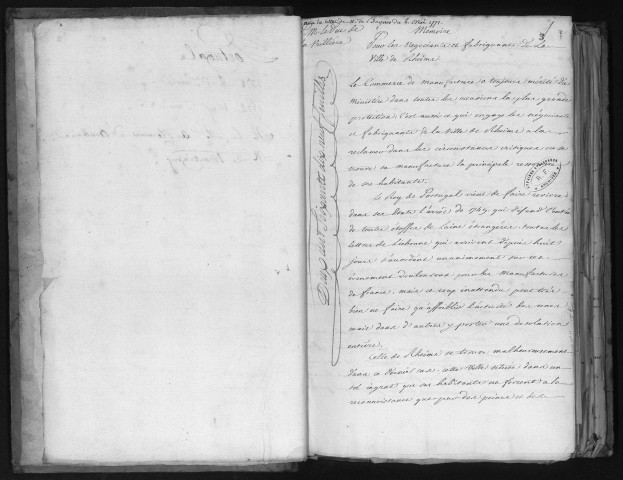 Mémoire
Pour les Négocians et fabriquans de la
Ville de Rheims.
Le Commerce de manufacture a toujours mérité du
Ministère dans toutes les occasions la plus grande
protection. C'est aussi ce qui engage les négocians
et fabriquans de la Ville de Rheims a la
reclamer dans les circonstances critiques ou se
trouve sa manufacture la principale ressource
de ses habitants.
Le Roy de Portugal vient de faire revivre
dans ses Etats l'arrêt de 1749 qui defend l'entrée
de toutes étoffes de laine étrangères toutes les
lettres de Lisbonne qui arrivent depuis huit
jours s'accordent unanimement sur cet
évènement douloureux pour les manufactures
de france, mais ce coup inattendu peut très
bien ne faire qu'affoiblir l'activité des unes
mais dans d'autres y porter une desolation
entière.
Celle de Rheims se trouve malheureusement
dans ce dernier cas. cette Ville située dans un
sol ingrat que ses habitants ne forcent a la
reconnoissance que par des peines et des
Deux cent soixante dix neuf feuilles